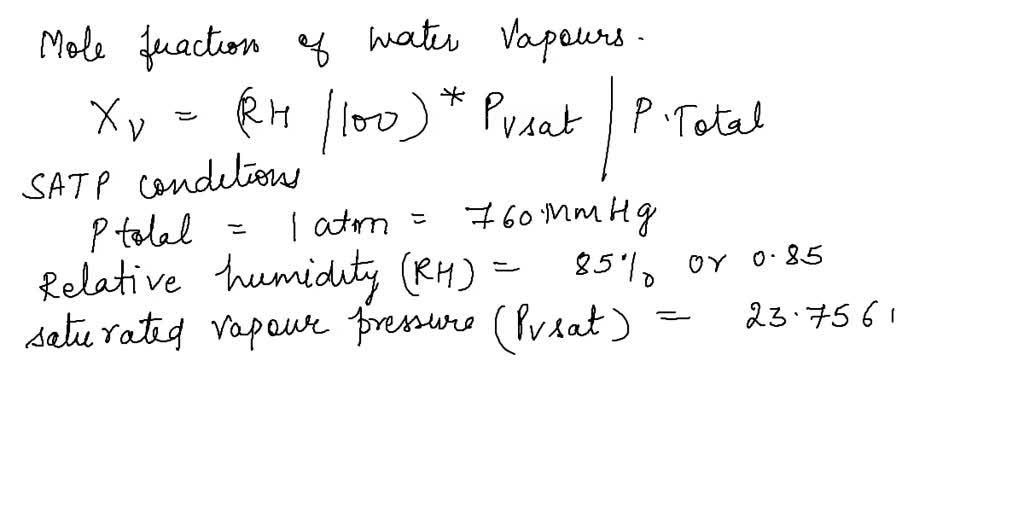 Mole fraction of water Vapours.
Xv = (RH / 100) * Pvsat / P.Total
SATP conditions
P total = 1 atm = 760.MmHg
Relative humidity (RH) = 85% or 0.85
saturated vapour pressure (Pvsat) = 23.756